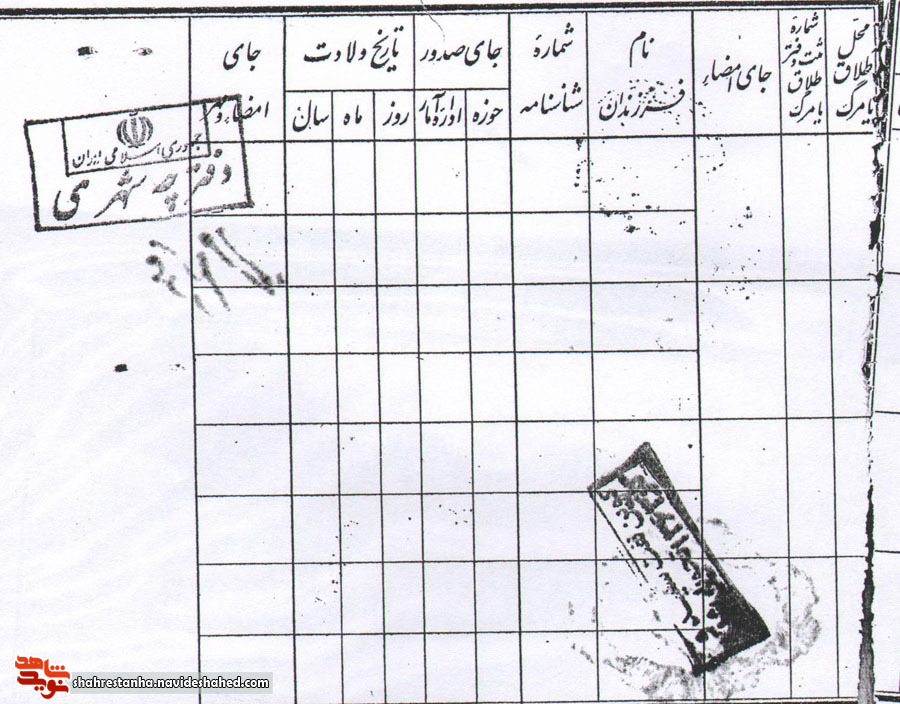 محل طلاق یا مرگ
شمارهٔ ثبت دفتر طلاق یا مرگ
جای امضاء
نام فرزندان
شمارهٔ شناسنامه
جای صدور
حوزه
ادارهٔ آمار
تاریخ ولادت
روز
ماه
سال
جای امضاء و مهر
جمهوری اسلامی ایران
دفترچه شهری
نوید شاهد
shahrestanha.navideshahed.com